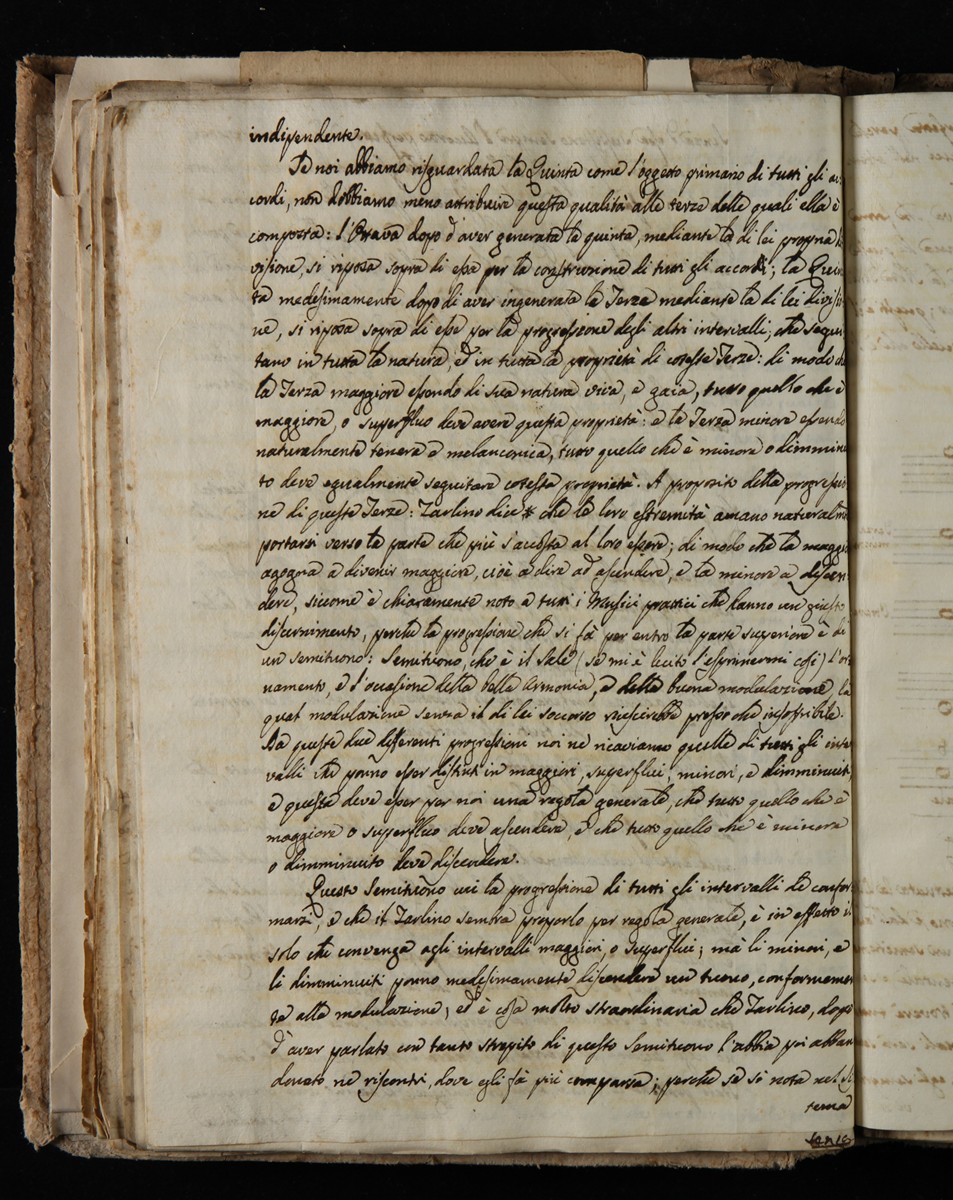 indipendente.
Se noi abbiamo risguardata la Quinta come l'oggetto primario di tutti gli ac
cordi, non dobbiamo meno attribuire questa qualità alle terze delle quali ella è
composta: l'Ottava dopo d'aver generata la quinta, mediante la di lei propria di
visione, si riposa sopra di essa per la costruzione di tutti gli accordi; la Quin
ta medesimamente dopo di aver ingenerata la Terza mediante la di lei divisio
ne, si riposa sopra di esse per la progressione degli altri intervalli, che segui
tano in tutta la natura, ed in tutta la proprietà di coteste Terze: di modo che
la Terza maggiore essendo di sua natura viva, e gaia, tutto quello che è
maggiore, o superfluo deve avere questa proprietà: e la Terza minore essendo
naturalmente tenera e melanconica, tutto quello che è minore o dimminui
to deve egualmente seguitare cotesta proprietà. A proposito della progressio
ne di queste Terze: Zarlino dice che le loro estremità amano naturalmte
portarsi verso la parte che più s'accosta al loro essere; di modo che la maggr
agogna a divenir maggiore, cioè a dire ad ascendere, e la minore a discen
dere, siccome è chiaramente noto a tutti i Musici prattici che hanno un giusto
discernimento, perchè la progressione che si fà per entro la parte superiore è di
un semituono: Semituono, che è il Sale (se mi è lecito l'esprimermi così) l'or
namento, e l'occasione della bella Armonia, e della buona modulazione, la
qual modulazione senza il di lei soccorso riescirebbe presso che insoffribile.
Da queste due differenti progressioni noi ne ricaviamo quelle di tutti gli inter
valli che ponno esser distinti in maggiori, superflui, minori, e dimminuiti,
e questa deve esser per noi una regola generale, che tutto quello che è
maggiore o superfluo deve ascendere, e che tutto quello che è minore
o dimminuito deve discendere.
Questo Semituono cui la progressione di tutti gli intervalli dè confor
marsi, e che il Zarlino sembra proporlo per regola generale, è in effetto il
solo che convenga agli intervalli maggiori, o superflui; ma li minori, e
li dimminuiti ponno medesimamente discendere un tuono, conformemen
te alla modulazione; ed è cosa molto straordinaria che Zarlino, dopo
d'aver parlato con tanto strepito di questo semituono l'abbia poi abban
donato ne riscontri, dove egli fà più comparsa; perchè se si nota nel Si
tema